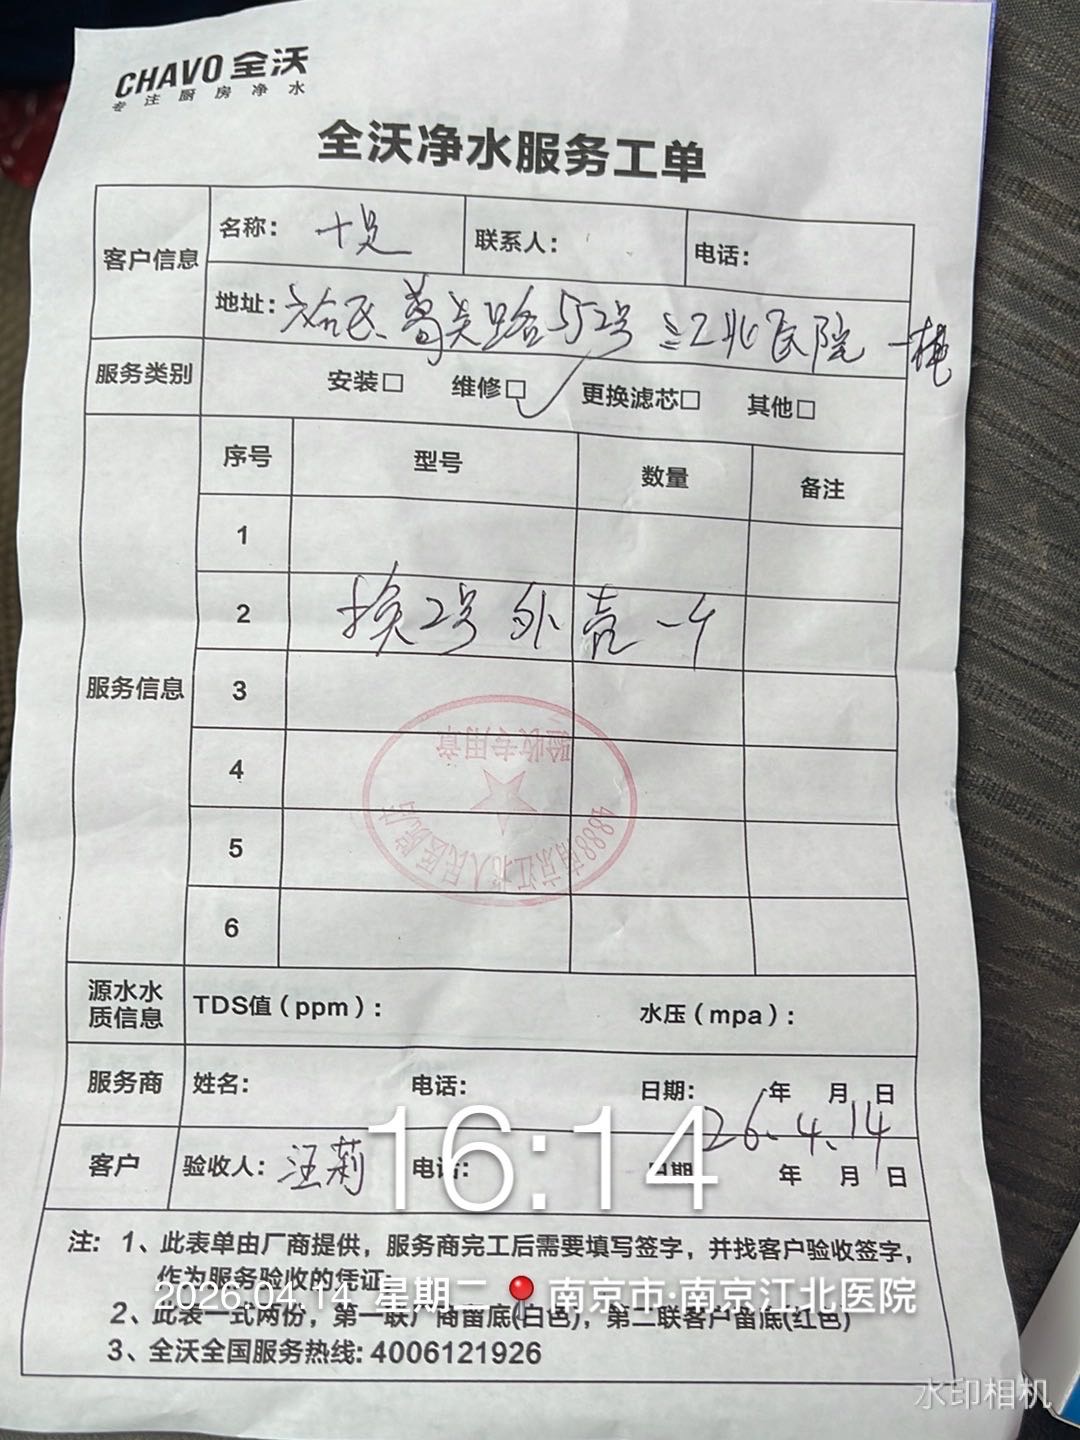 CHAVO 全沃
专注厨房净水
全沃净水服务工单
客户信息 名称: 十足 联系人: 电话:
地址: 六合区葛关路552号 江北医院一楼
服务类别 安装□ 维修□✓ 更换滤芯□ 其他□
服务信息 序号 型号 数量 备注
1
2 换2号外壳一个
3
4
5
6
验收专用章
4888南京江北人民医院店
源水水质信息 TDS值(ppm): 水压(mpa):
服务商 姓名: 电话: 日期: 年 月 日
26.4.14
客户 验收人: 汪莉 电话: 日期 年 月 日
16:14
注: 1、此表单由厂商提供，服务商完工后需要填写签字，并找客户验收签字，
作为服务验收的凭证
2026.04.14 星期二 南京市·南京江北医院
2、此表一式两份，第一联厂商留底(白色)，第二联客户留底(红色)
3、全沃全国服务热线: 4006121926
水印相机